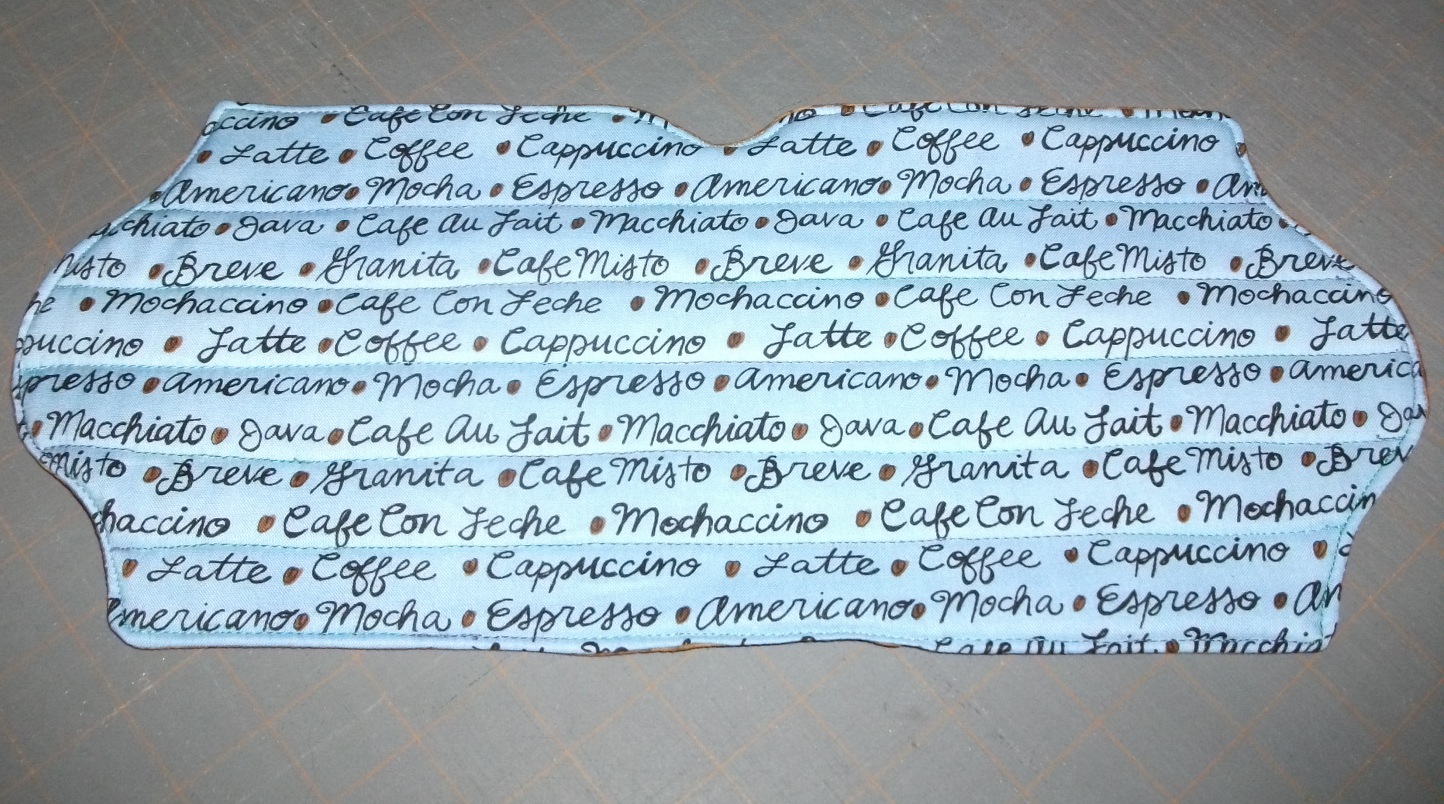 ccino • Cafe Con Leche • M • Cafe Con Leche
• Latte • Coffee • Cappuccino • Latte • Coffee • Cappuccino •
• Americano • Mocha • Espresso • Americano • Mocha • Espresso • Am
chiato • Java • Cafe Au Lait • Macchiato • Java • Cafe Au Lait • Macchiato •
Misto • Breve • Granita • Cafe Misto • Breve • Granita • Cafe Misto • Breve
he • Mochaccino • Cafe Con Leche • Mochaccino • Cafe Con Leche • Mochaccino
puccino • Latte • Coffee • Cappuccino • Latte • Coffee • Cappuccino • Latte
presso • Americano • Mocha • Espresso • Americano • Mocha • Espresso • America
• Macchiato • Java • Cafe Au Lait • Macchiato • Java • Cafe Au Lait • Macchiato • Jav
Misto • Breve • Granita • Cafe Misto • Breve • Granita • Cafe Misto • Brev
haccino • Cafe Con Leche • Mochaccino • Cafe Con Leche • Mochaccin
• Latte • Coffee • Cappuccino • Latte • Coffee • Cappuccino •
Americano • Mocha • Espresso • Americano • Mocha • Espresso • Am
Cafe Au Lait • Macchia